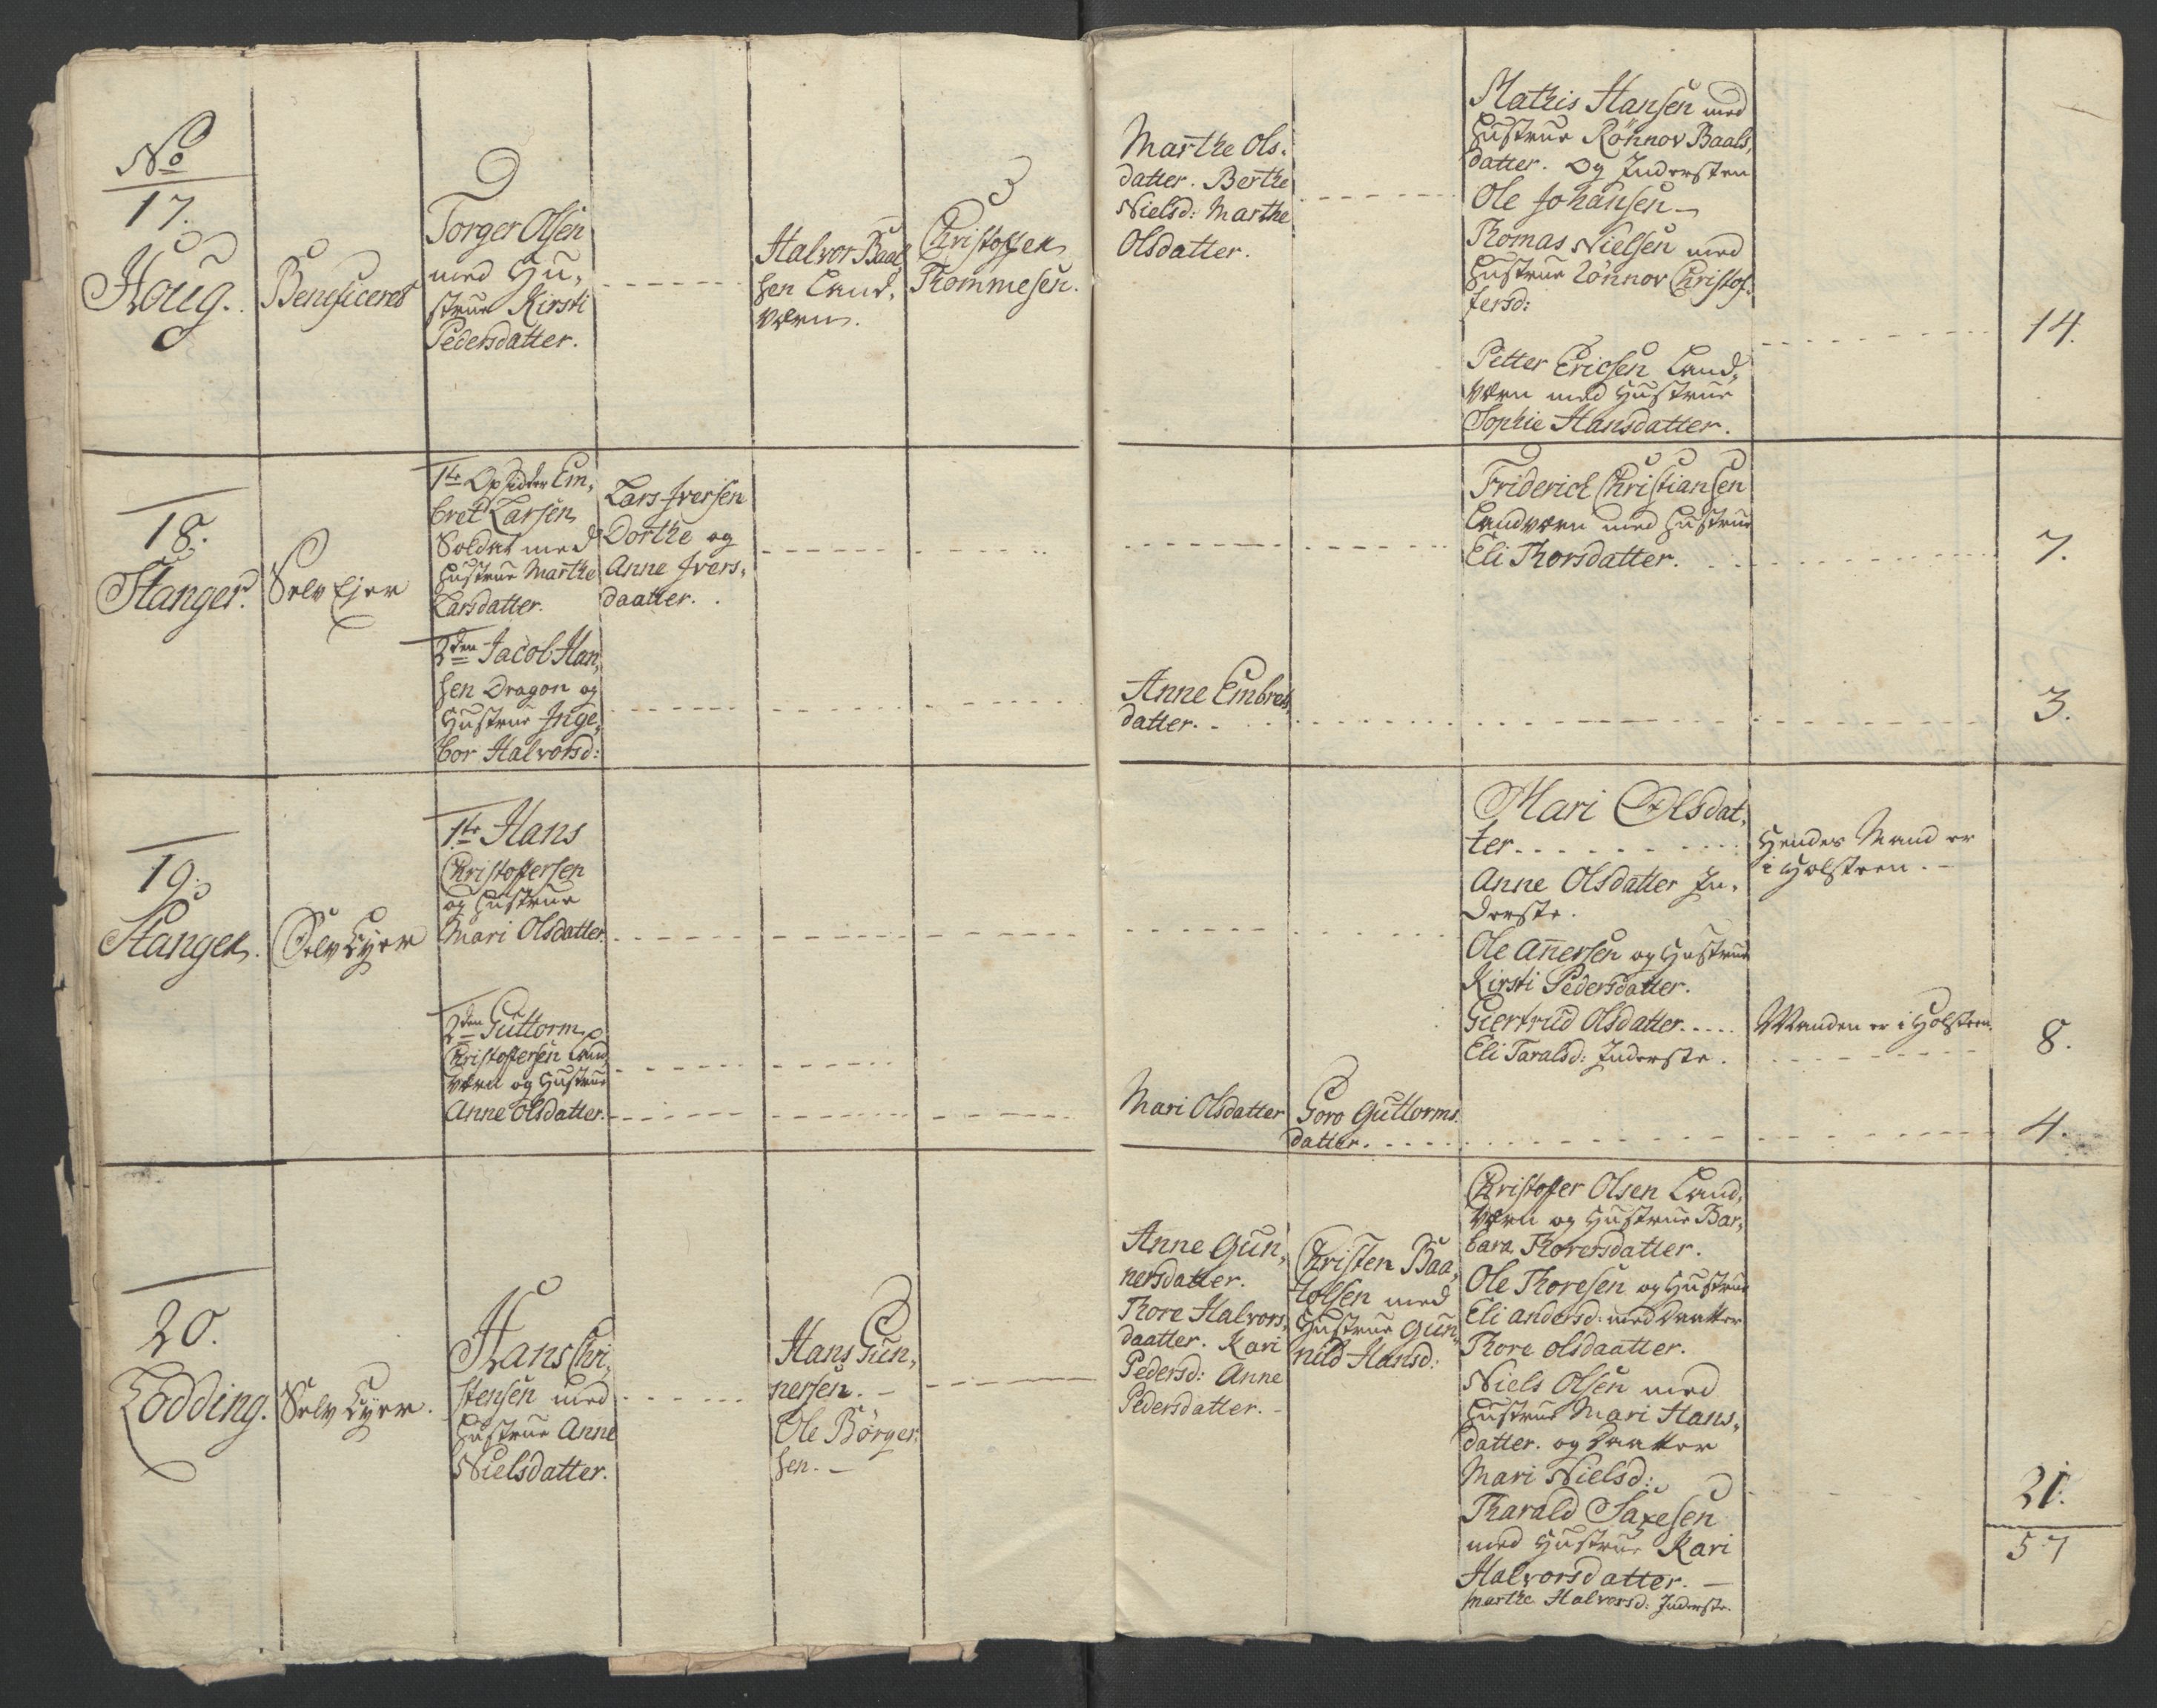 No
17.
Houg.
Beneficeret
Torger Olsen
med Hu-
strue Kirsti
Pedersdatter.
Halvor Baal
sen Land-
værn.
Christoffer
Thommesen.
Marthe Ols-
datter. Berthe
Nielsd: Marthe
Olsdatter.
Mathis Hansen med
Hustrue Rönnov Baals-
datter. Og Indersten
Ole Johansen
Thomas Nielsen med
Hustrue Rönnov Christof-
fersd:
Petter Ericsen Land-
værn med Hustrue
Sophie Hansdatter.
14.
18.
Stanger.
Selv Ejer
1te Opsidder Em-
bret Larsen
Soldat med
Hustrue Marthe
Larsdatter.
Lars Iversen
Dorthe og
Anne Ivers-
daatter.
Friderich Christiansen
Landværn med Hustrue
Eli Thorsdatter.
7.
2den Jacob Han-
sen Dragon og
Hustrue Inge-
bor Halvorsd:
Anne Embrets-
datter.
3.
19.
Stanger.
Selv Eyer
1te Hans
Christoffersen
og Hustrue
Mari Olsdatter.
Mari Olsdat-
ter.
Hendes Mand er
i Holsteen.
Anne Olsdatter In-
derste.
Ole Annersen og Hustrue
Kirsti Pedersdatter.
Giertrud Olsdatter.
Manden er i Holsteen.
Eli Taralsd: Inderste.
8.
2den Guttorm
Christoffersen Land-
værn og Hustrue
Anne Olsdatter.
Mari Olsdatter
Goro Guttorms-
datter.
4.
20.
Lodding.
Selv Eyer.
Hans Chri-
stensen med
Hustrue Anne
Nielsdatter.
Hans Gun-
nersen.
Ole Börger-
sen.
Anne Gun-
nersdatter.
Thore Halvors-
daatter. Kari
Pedersd: Anne
Pedersdatter.
Christen Baa-
rdsen med
Hustrue Gun-
nild Hansd:
Christoffer Olsen Land-
værn og Hustrue Bar-
bara Thorersdatter.
Ole Thoresen og Hustrue
Eli Andersd: med Daatter
Thore Olsdaatter.
Niels Olsen med
Hustrue Mari Hans-
datter. og Daatter
Mari Nielsd:
Tharald Saxesen
med Hustrue Kari
Halvorsdatter.
Marthe Halvorsd: Inderste.
21.
57